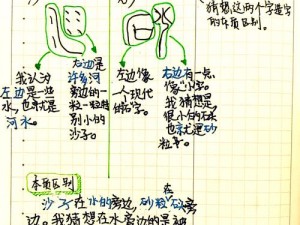 猜想,这两个字造字
的本质区别。
我认为
左边是一些
水,也就是
河水。
右边是
许多河
旁边的一
粒一粒特
别小的
沙子。
左边像
一个现代
右边有一点
像"小"。
我猜想是
很小的石
也就是砂
粒子。
本质区别
沙子在水的旁边,砂粒在石旁
边。我猜想在水旁边的是被